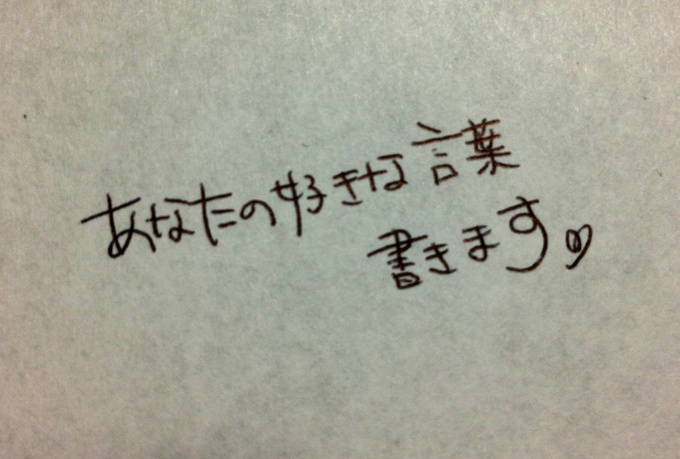 あなたの好きな言葉
書きます♡